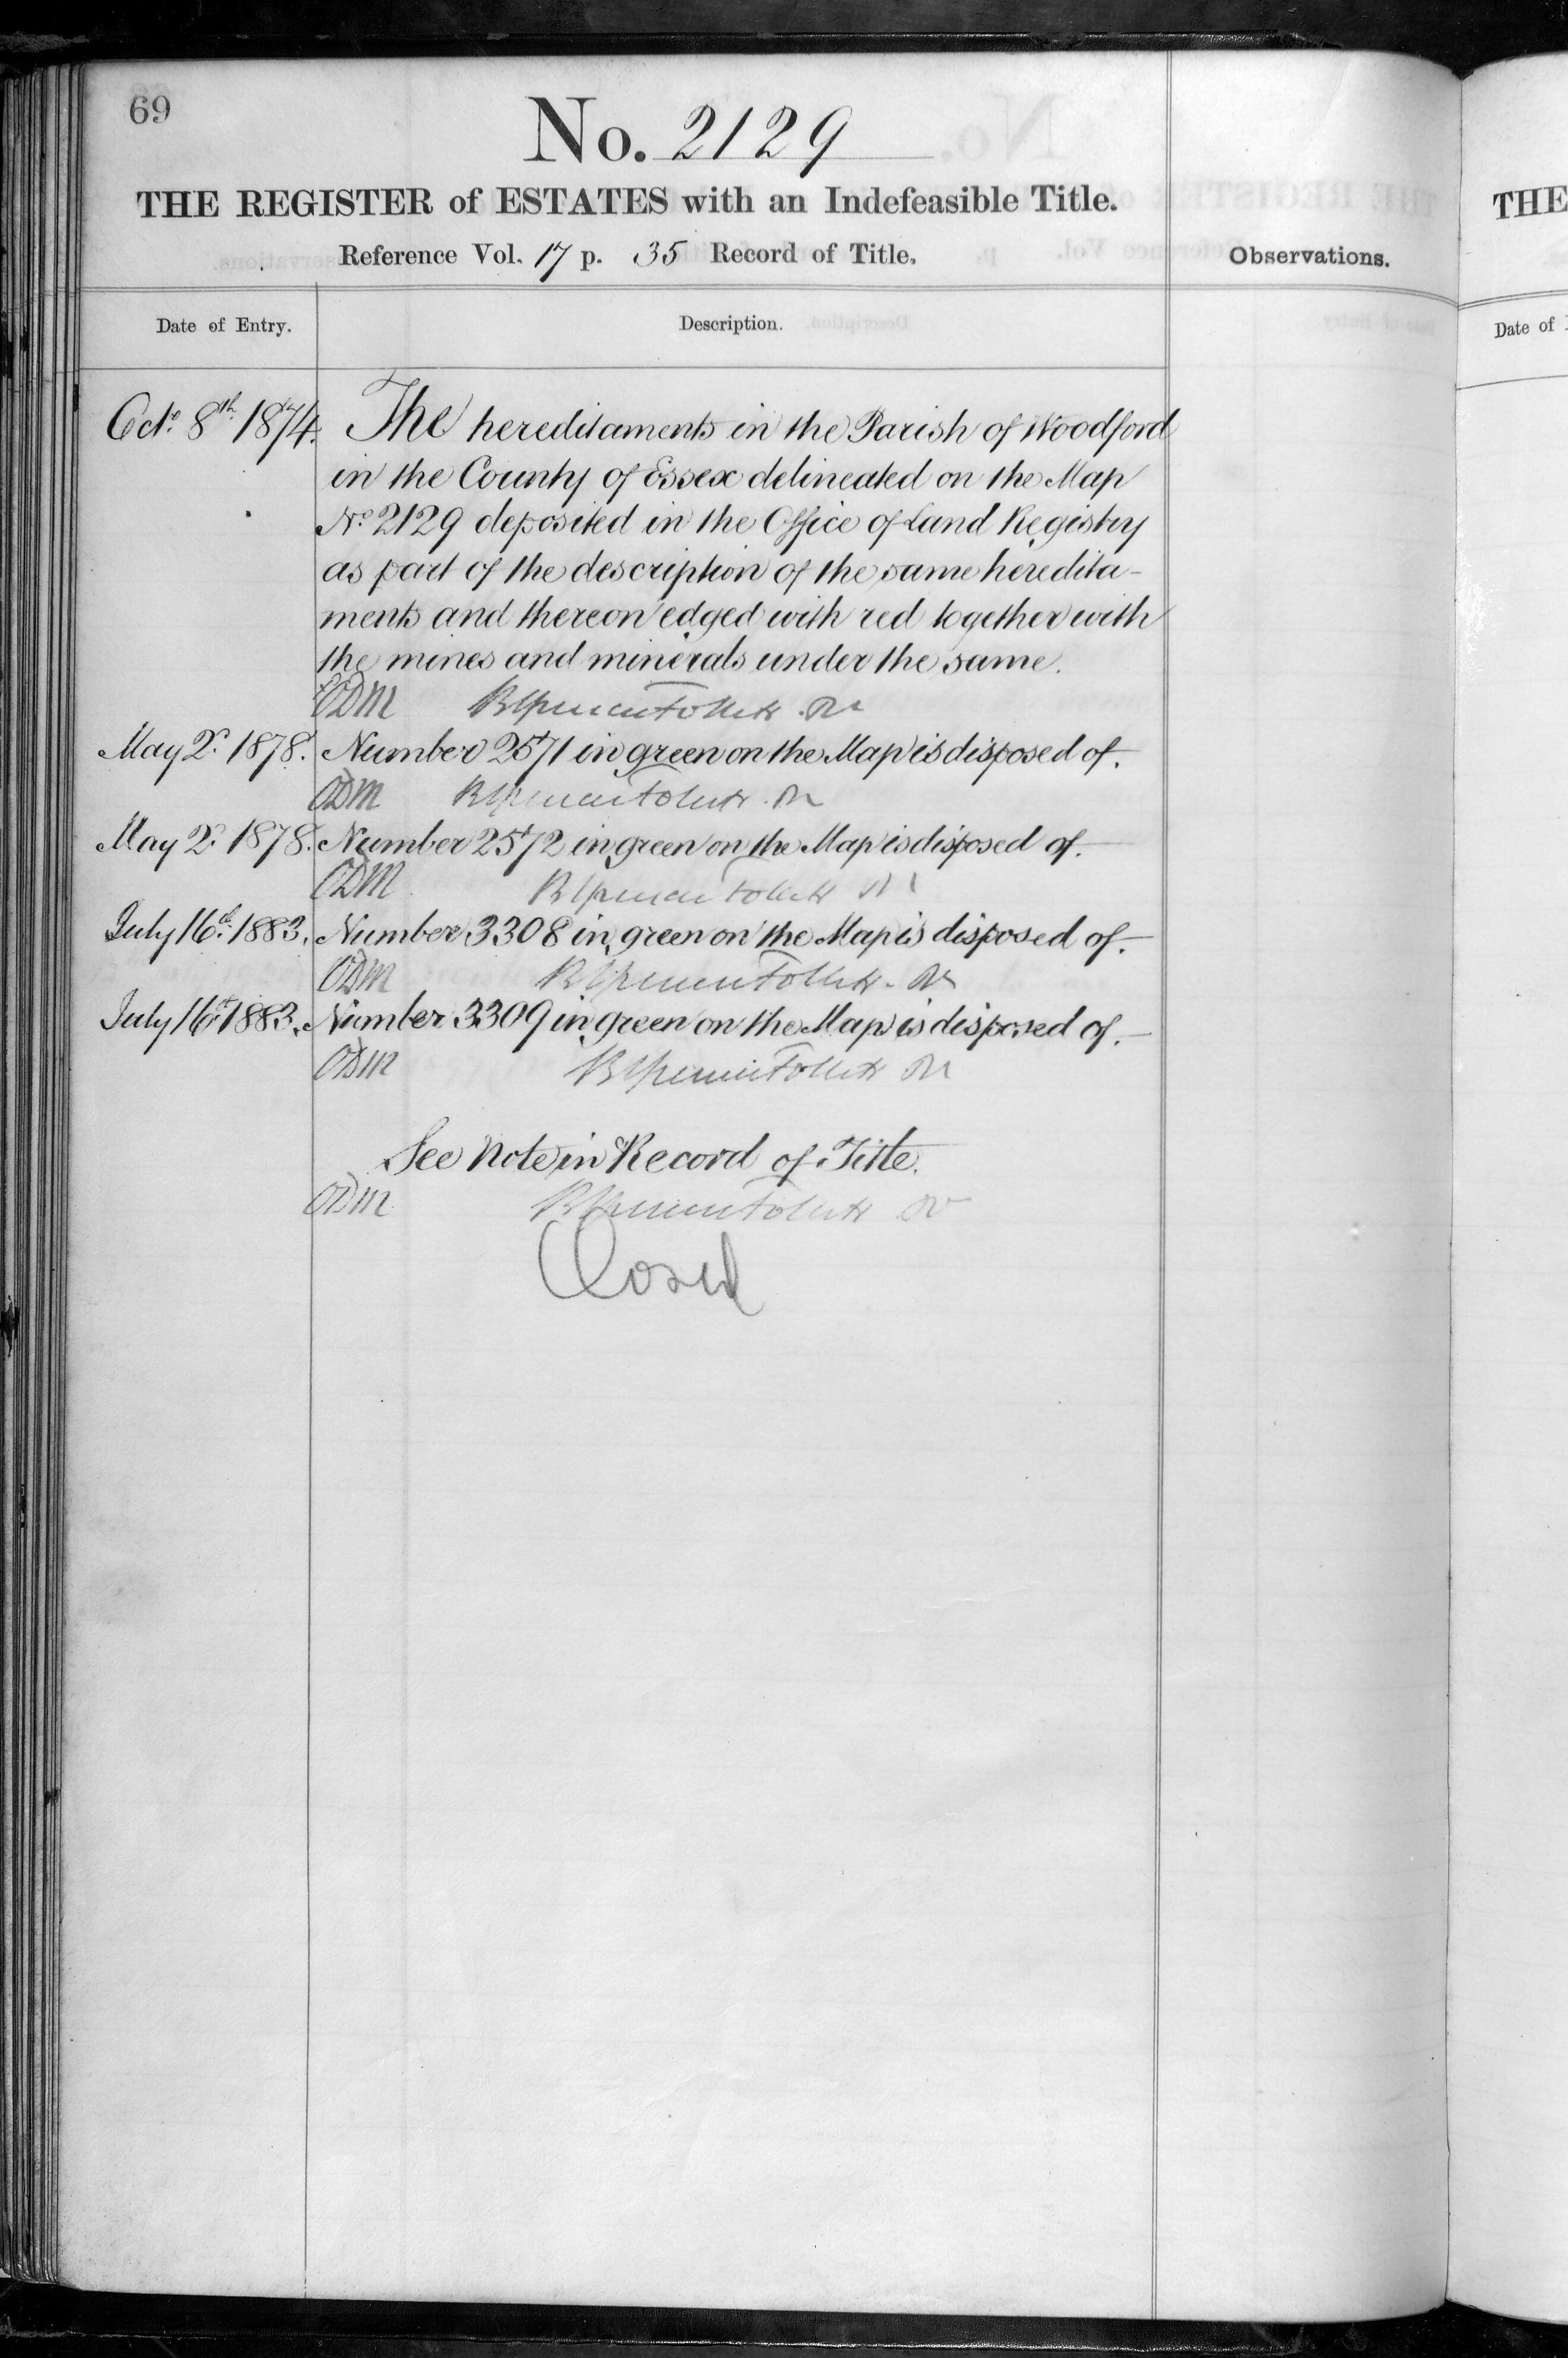 69
No. 2129
THE REGISTER of ESTATES with an Indefeasible Title.
Reference Vol. 17 p. 35 Record of Title.
Observations.
Date of Entry.
Description.
Octr. 8th. 1874. The hereditaments in the Parish of Woodford
in the County of Essex delineated on the Map
No. 2129 deposited in the Office of Land Registry
as part of the description of the same heredita-
ments and thereon edged with red together with
the mines and minerals under the same.
ODM
May 2d. 1878. Number 2571 in green on the Map is disposed of.
ODM
May 2d. 1878. Number 2572 in green on the Map is disposed of.
ODM
July 16th. 1883. Number 3308 in green on the Map is disposed of.
ODM
July 16th. 1883. Number 3309 in green on the Map is disposed of.
ODM
See Note in Record of Title.
ODM
Closed
THE
Date of